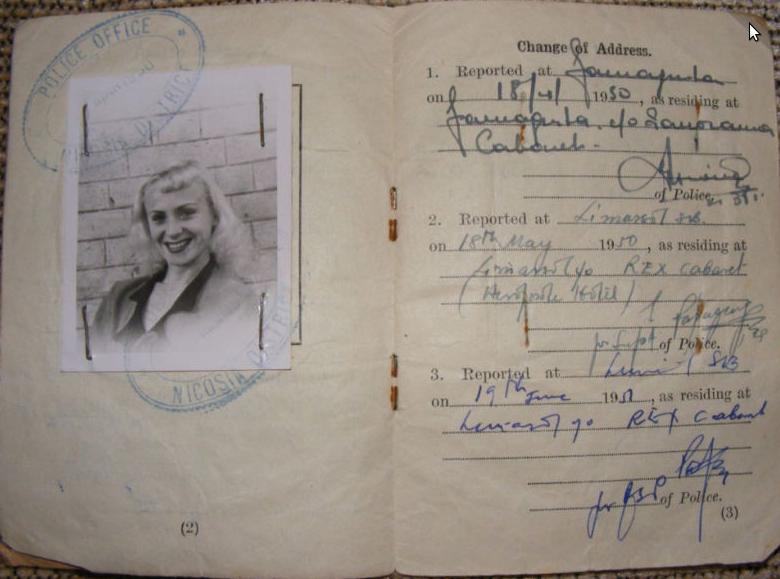 POLICE OFFICE
DISTRICT
NICOSIA
(2)
Change of Address.
1. Reported at Famagusta
on 18/4/ 1950, as residing at
Famagusta. c/o Panorama
Cabaret.
of Police
2. Reported at Limassol
on 18th May 1950, as residing at
Limassol c/o REX Cabaret
Hotel)
for Supt of Police.
3. Reported at
on 19th June 195, as residing at
Limassol c/o REX Cabaret
for of Police.
(3)